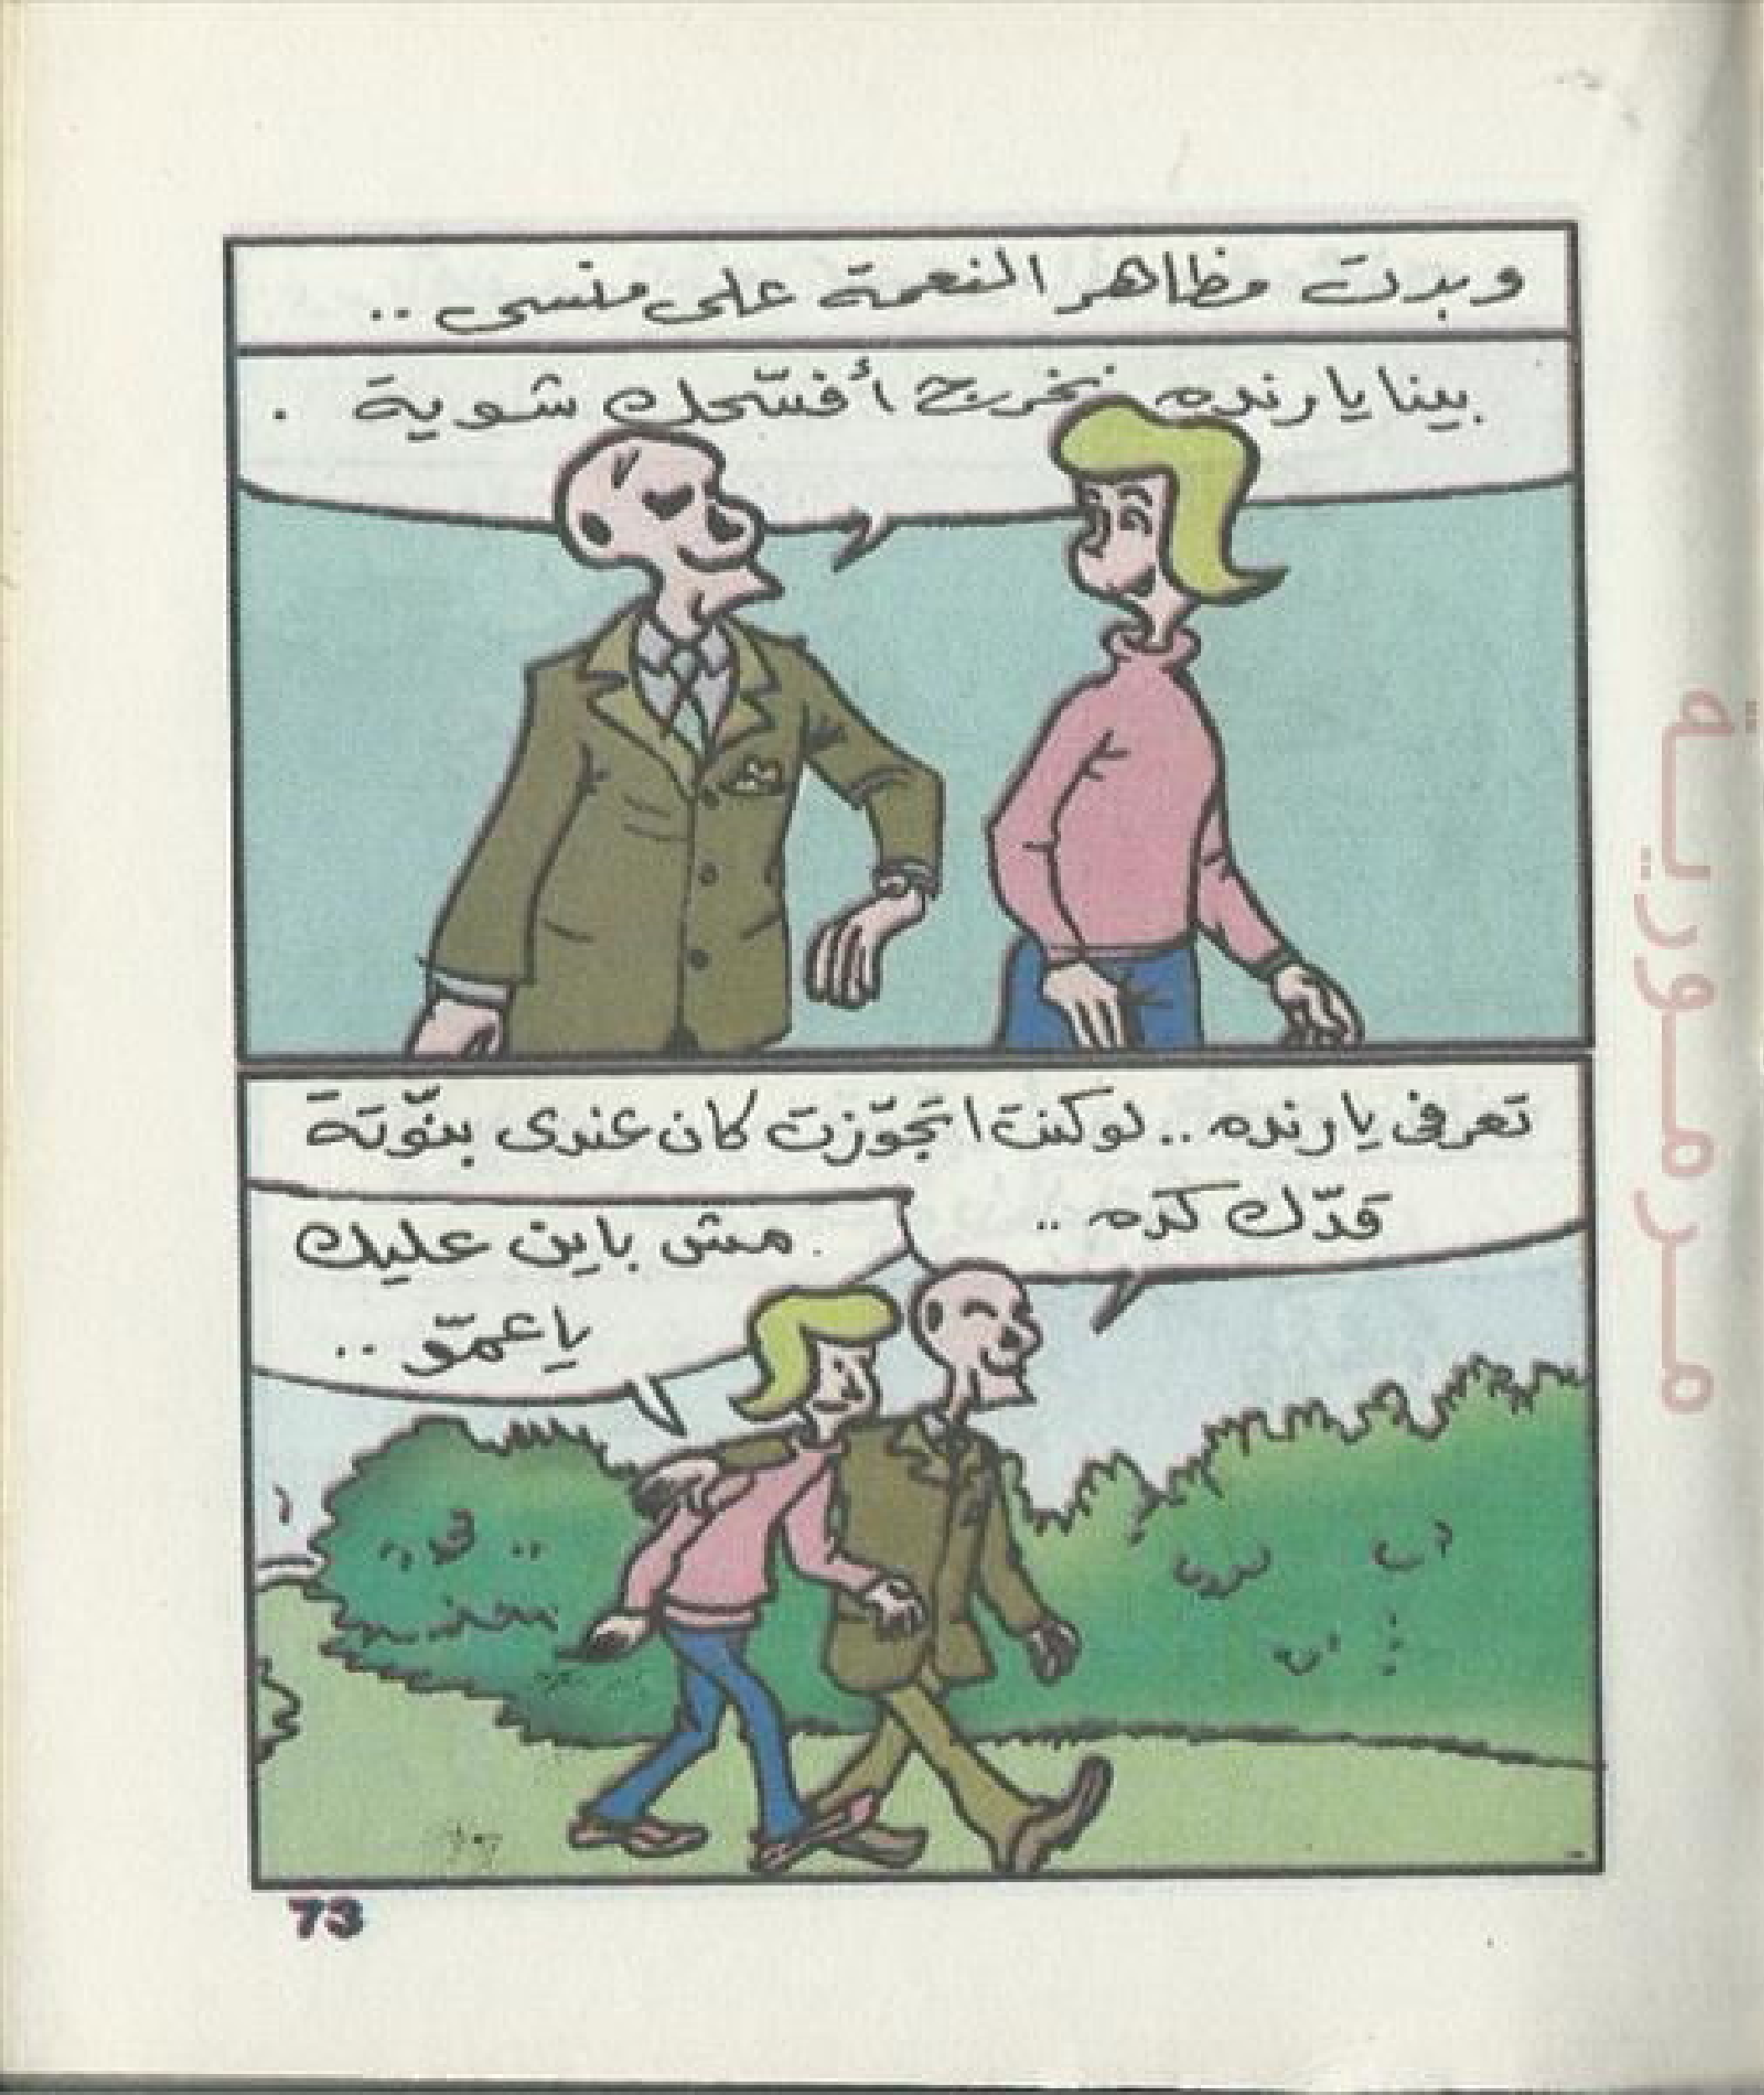 وبدت مظاهر النعمة على منسى ..
بينا يا رنده نخرج أفسّحك شوية .
تعرفى يا رنده .. لو كنت اتجوّزت كان عندى بنّوتة
قدّك كده ..
مش باين عليك
يا عمّو ..
73
مرمورية